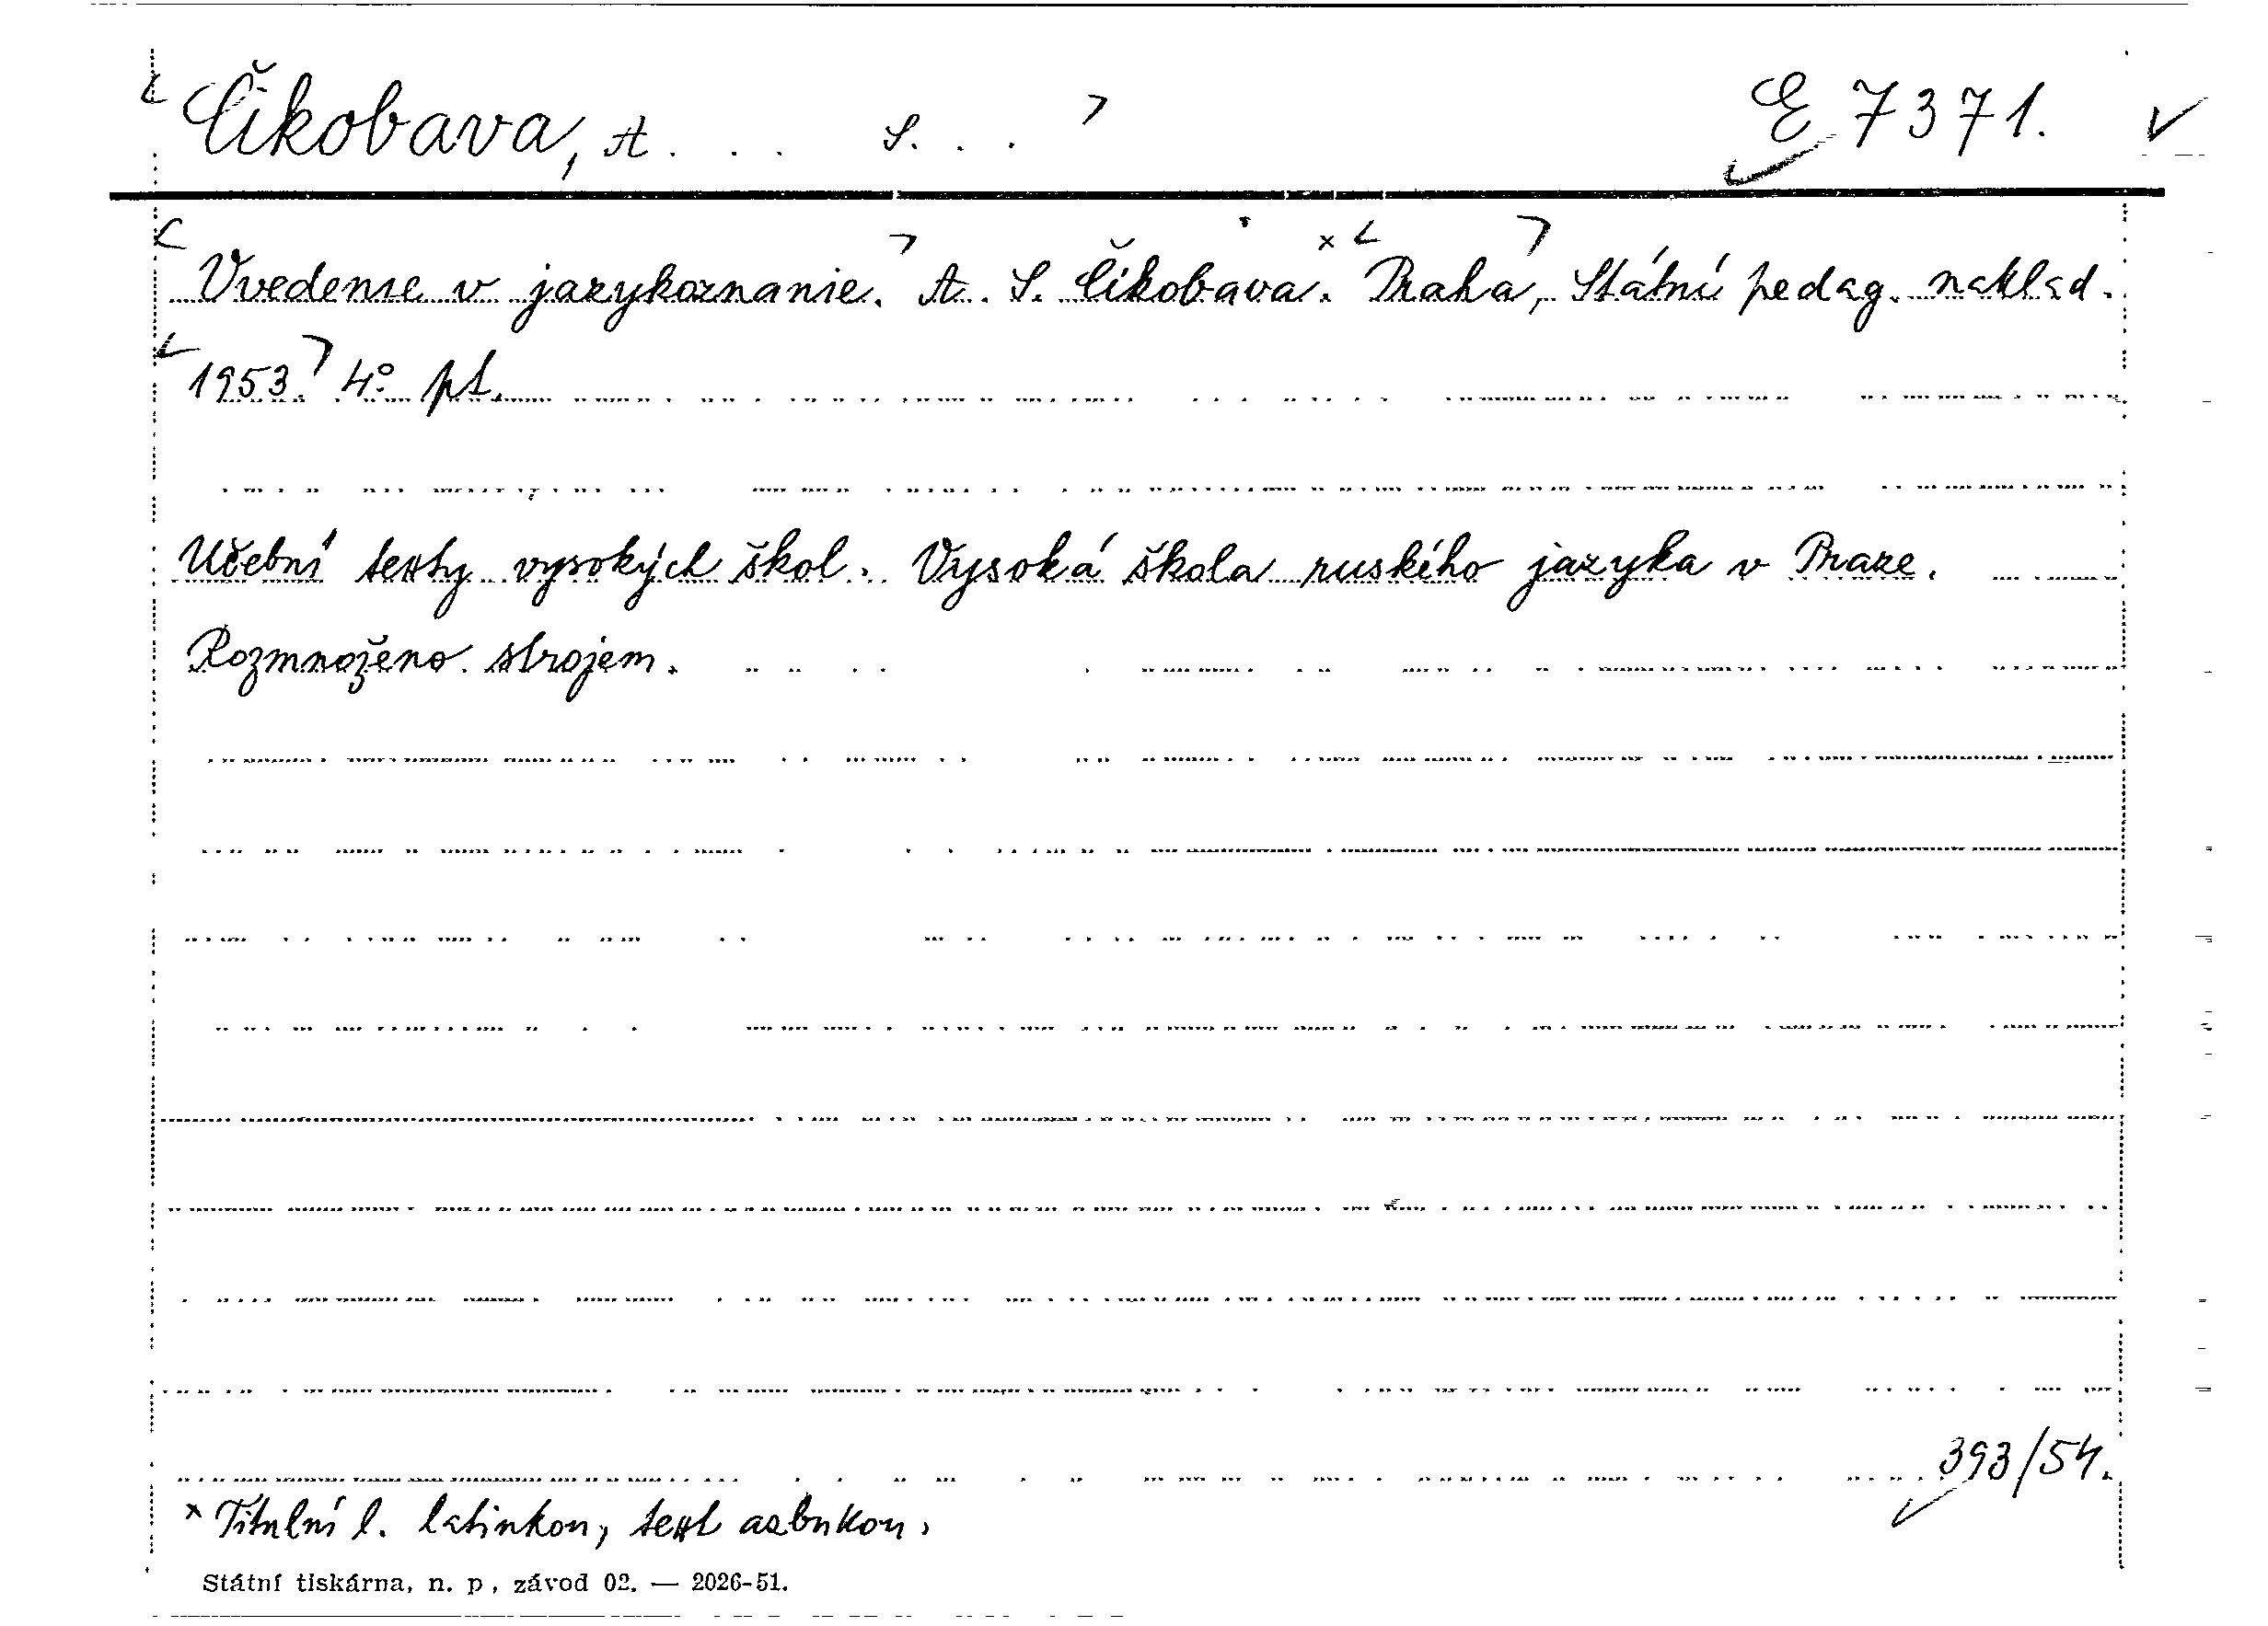 Čikobava, A. . . S. . . E 7371.
Vvedenie v jazykoznanie. A. S. Čikobava. × Praha, Státní pedag. naklad.
1953. 4° pt.
Učební texty vysokých škol. Vysoká škola ruského jazyka v Praze.
Rozmnoženo strojem.
393/54.
× Titulní l. latinkou, text azbukou.
Státní tiskárna, n. p., závod 02. — 2026-51.